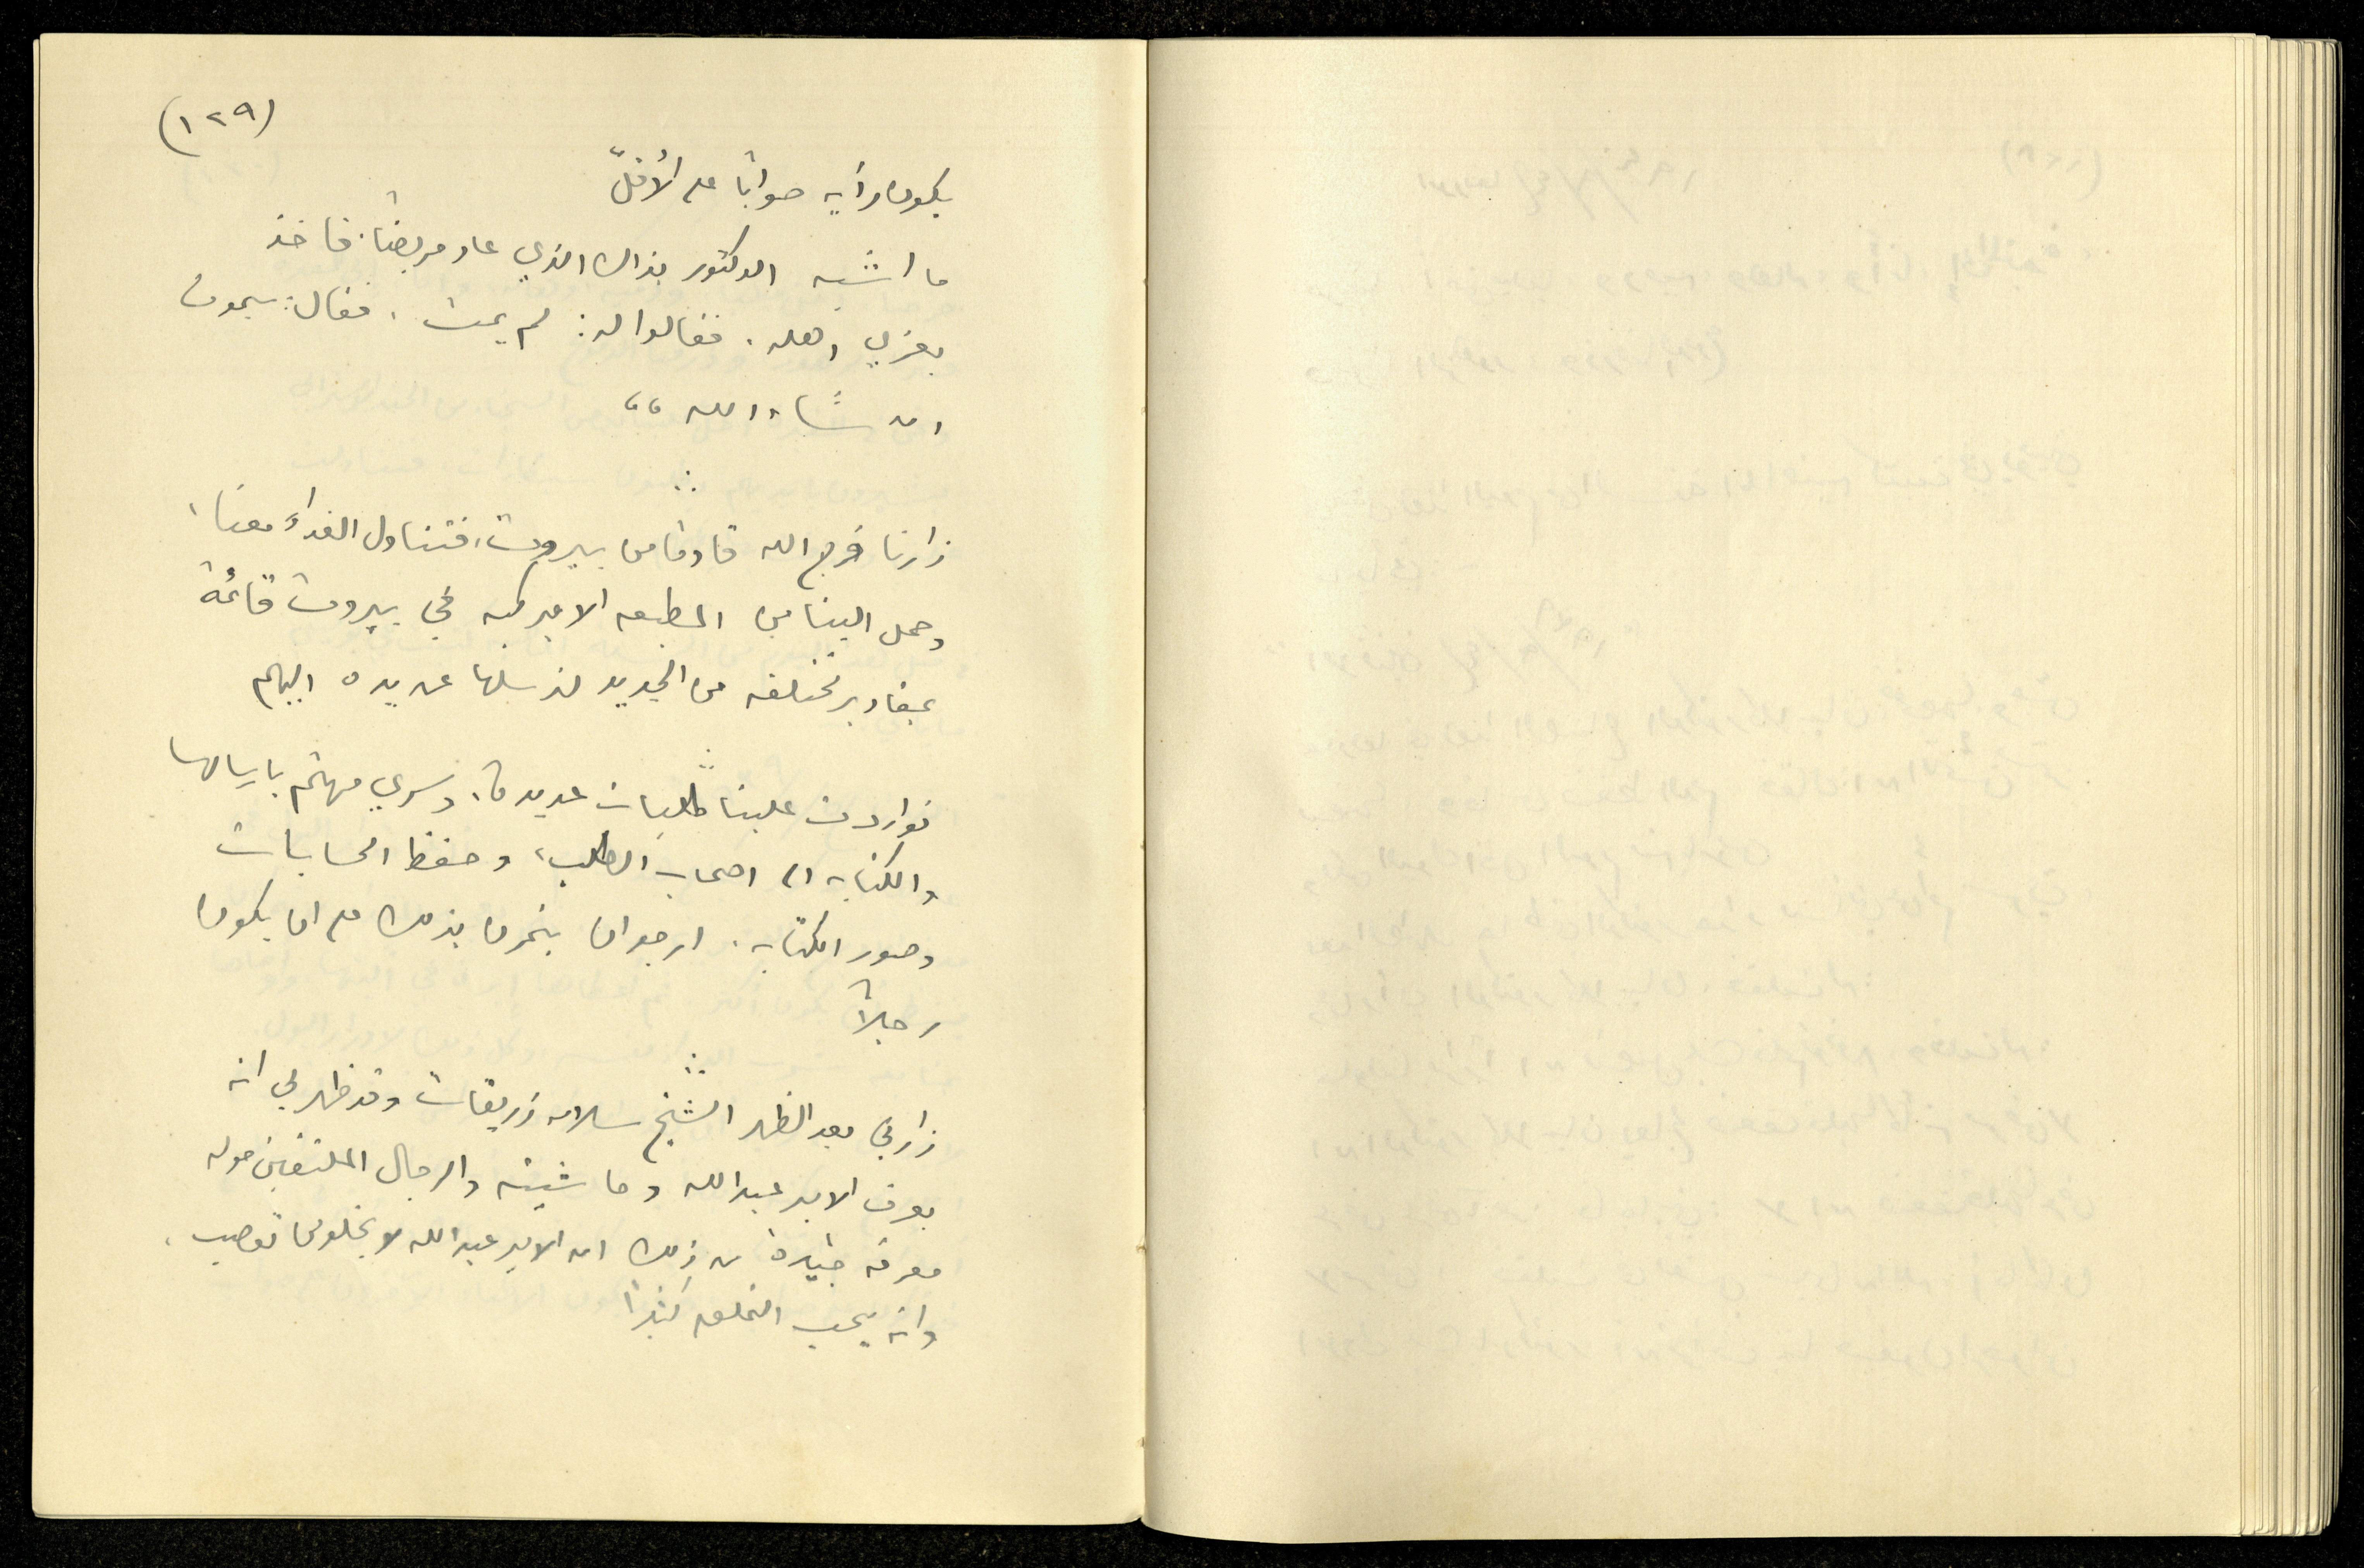 (١٢٩)
يكون رأيه صوابًا على الأقلّ
ما اشبه الدكتور بذاك الذي عاد مريضًا. فاخذ
يعزي اهله. فقالوا له: لم يمت. فقال: يموت
ان شاء الله ،،
زارنا فرج الله قادمًا من بيروت، فتناول الغداء معنا،
وحمل الينا من المطبعه الاميركيه في بيروت قائمة
بمقادير مختلفه من الجديد لنرسلها عن يده اليهم
تواردت علينا طلبات عديدة، وسري مهتم بارسالها
والكتابه الى اصحاب الطلب، وحفظ الحسابات
وصور الكتابه. ارجو ان يتمرن بذلك على ان يكون
رجلاً
زارني بعد الظهر الشيخ سلامه زريقات وقد ظهر لي انه
يعرف الامير عبدالله وحاشيته والرجال الملتفين حوله
معرفه جيدة من ذلك ان الامير عبدالله لا يخلو من تعصب،
وانه يحب التملق كثيرًا